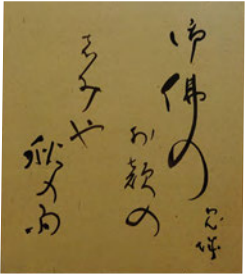 御佛の
お顔の
しみや
秋の雨